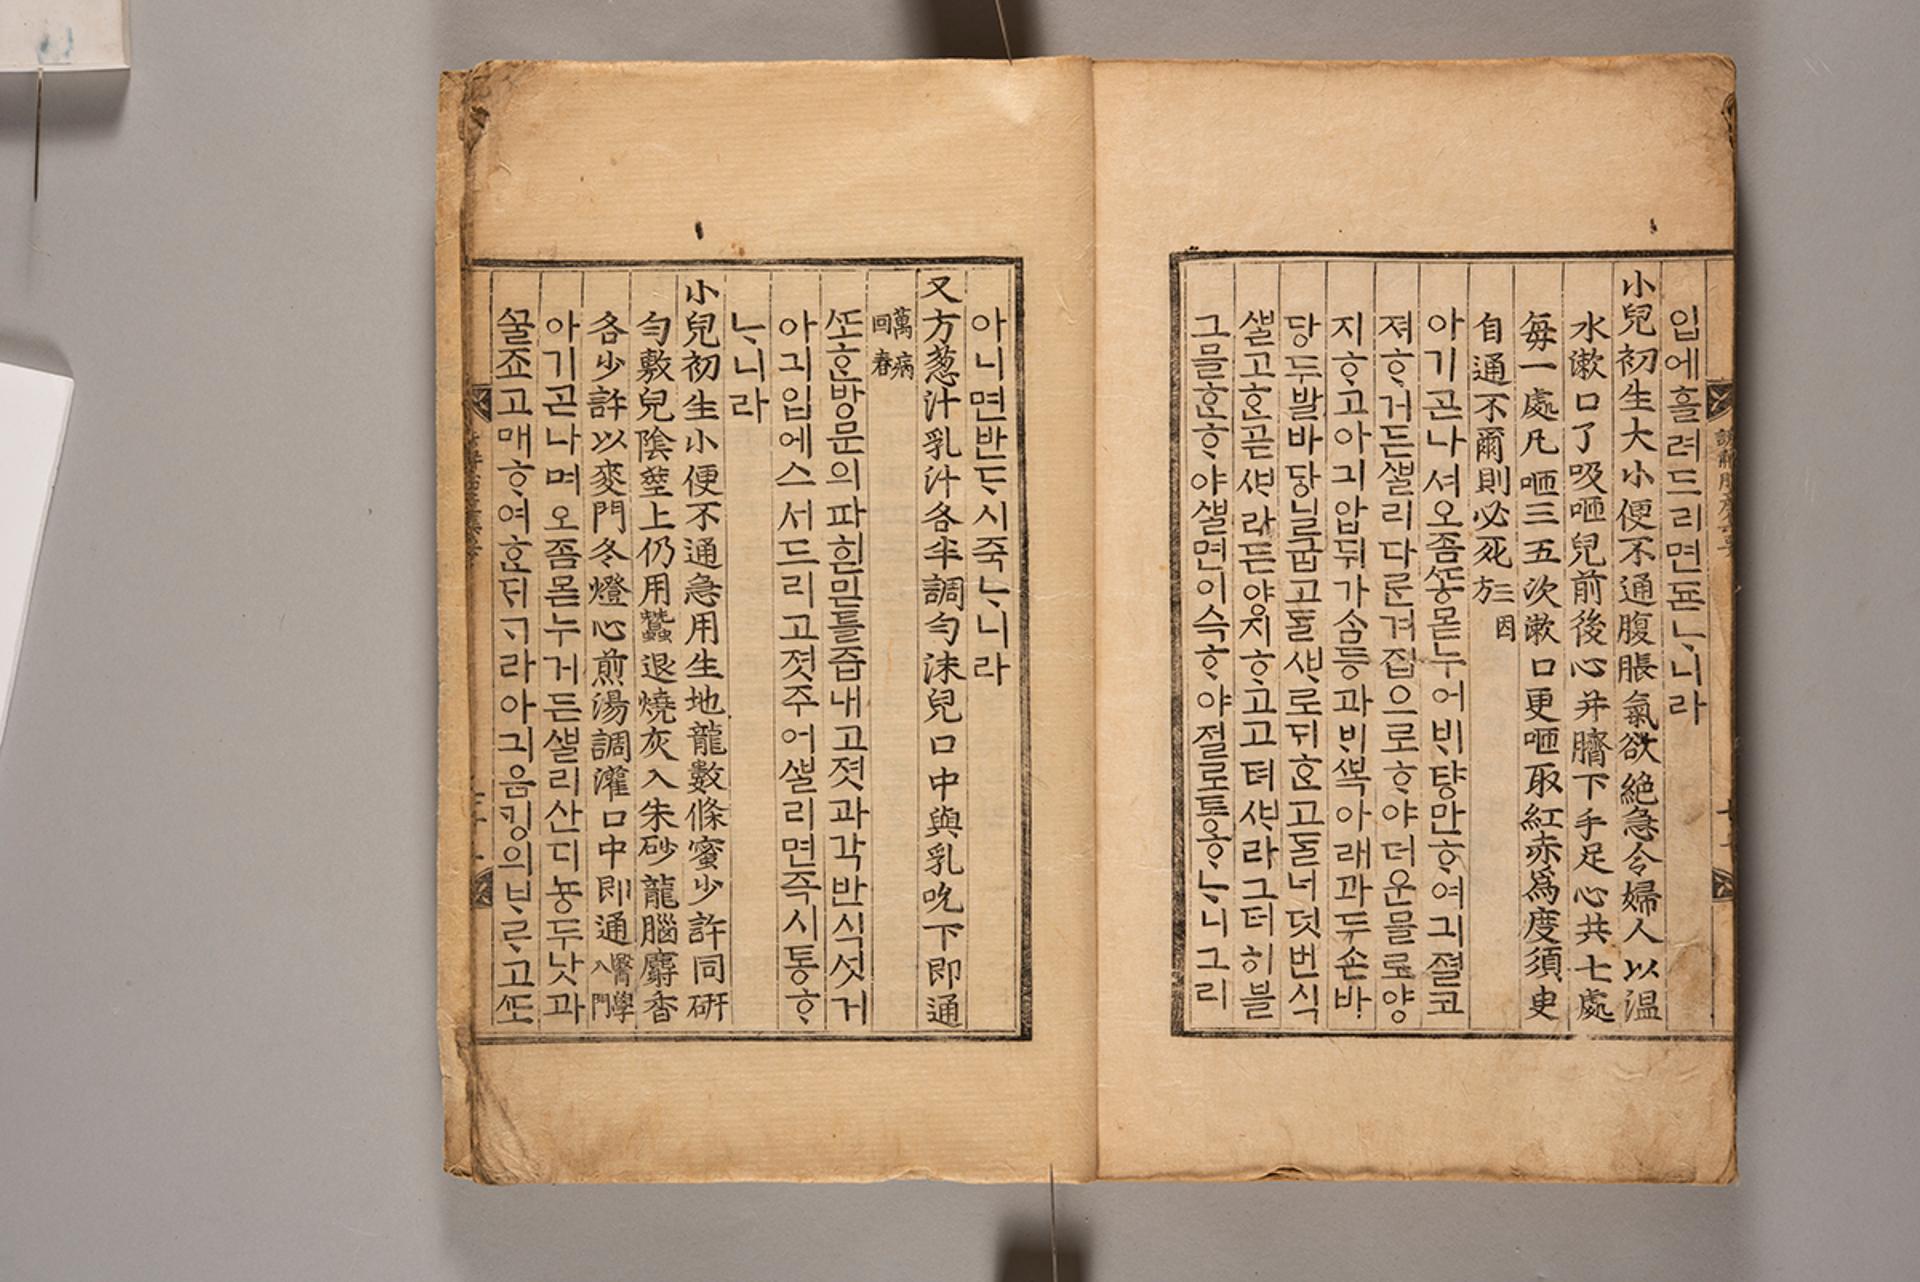 입에흘려드리면됸ᄂᆞ니라
小兒初生大小便不通腹脹氣欲絶急令婦人以溫
水漱口了吸咂兒前後心并臍下手足心共七處
每一處凡咂三五次漱口更咂取紅赤爲度須臾
自通不爾則必死三因方
아기곧나셔오좀ᄯᅩᆼ몯누어ᄇᆡ탕만ᄒᆞ여긔졀코
져ᄒᆞ거든ᄲᆞᆯ리다ᄅᆞᆫ겨집으로ᄒᆞ야더운믈로양
지ᄒᆞ고아긔압뒤가ᄉᆞᆷ등과ᄇᆡᄲᅩᆨ아래과두손바
당두발바당닐굽고ᄃᆞᆯᄲᆞ로ᄃᆡᄒᆞᆫ고ᄃᆞᆯ너덧번식
ᄲᆞᆯ고ᄒᆞᆫ곧ᄲᆞ라든양지ᄒᆞ고고텨ᄲᆞ라그터히블
그믈ᄒᆞᆫᄒᆞ야ᄲᆞᆯ면이슥ᄒᆞ야졀로통ᄒᆞᄂᆞ니그리
아니면반ᄃᆞ시죽ᄂᆞ니라
又方葱汁乳汁各半調勻沫兒口中與乳吮下即通
萬病回春
ᄯᅩᄒᆞᆫ방문의파흰믿틀즙내고졋과각반식섯거
아긔입에스서드리고졋주어ᄲᆞᆯ리면즉시통ᄒᆞ
ᄂᆞ니라
小兒初生小便不通急用生地龍數條蜜少許同硏
勻敷兒陰莖上仍用蠶退燒灰入朱砂龍腦麝香
各少許以麥門冬燈心煎湯調灌口中即通醫學入門
아기곧나며오좀몯누거든ᄲᆞᆯ리산디뇽두낫과
ᄭᅮᆯ죠고매ᄒᆞ여ᄒᆞᆫᄃᆡᄀᆞ라아긔음ᄀᆡᆼ의ᄇᆞᄅᆞ고ᄯᅩ